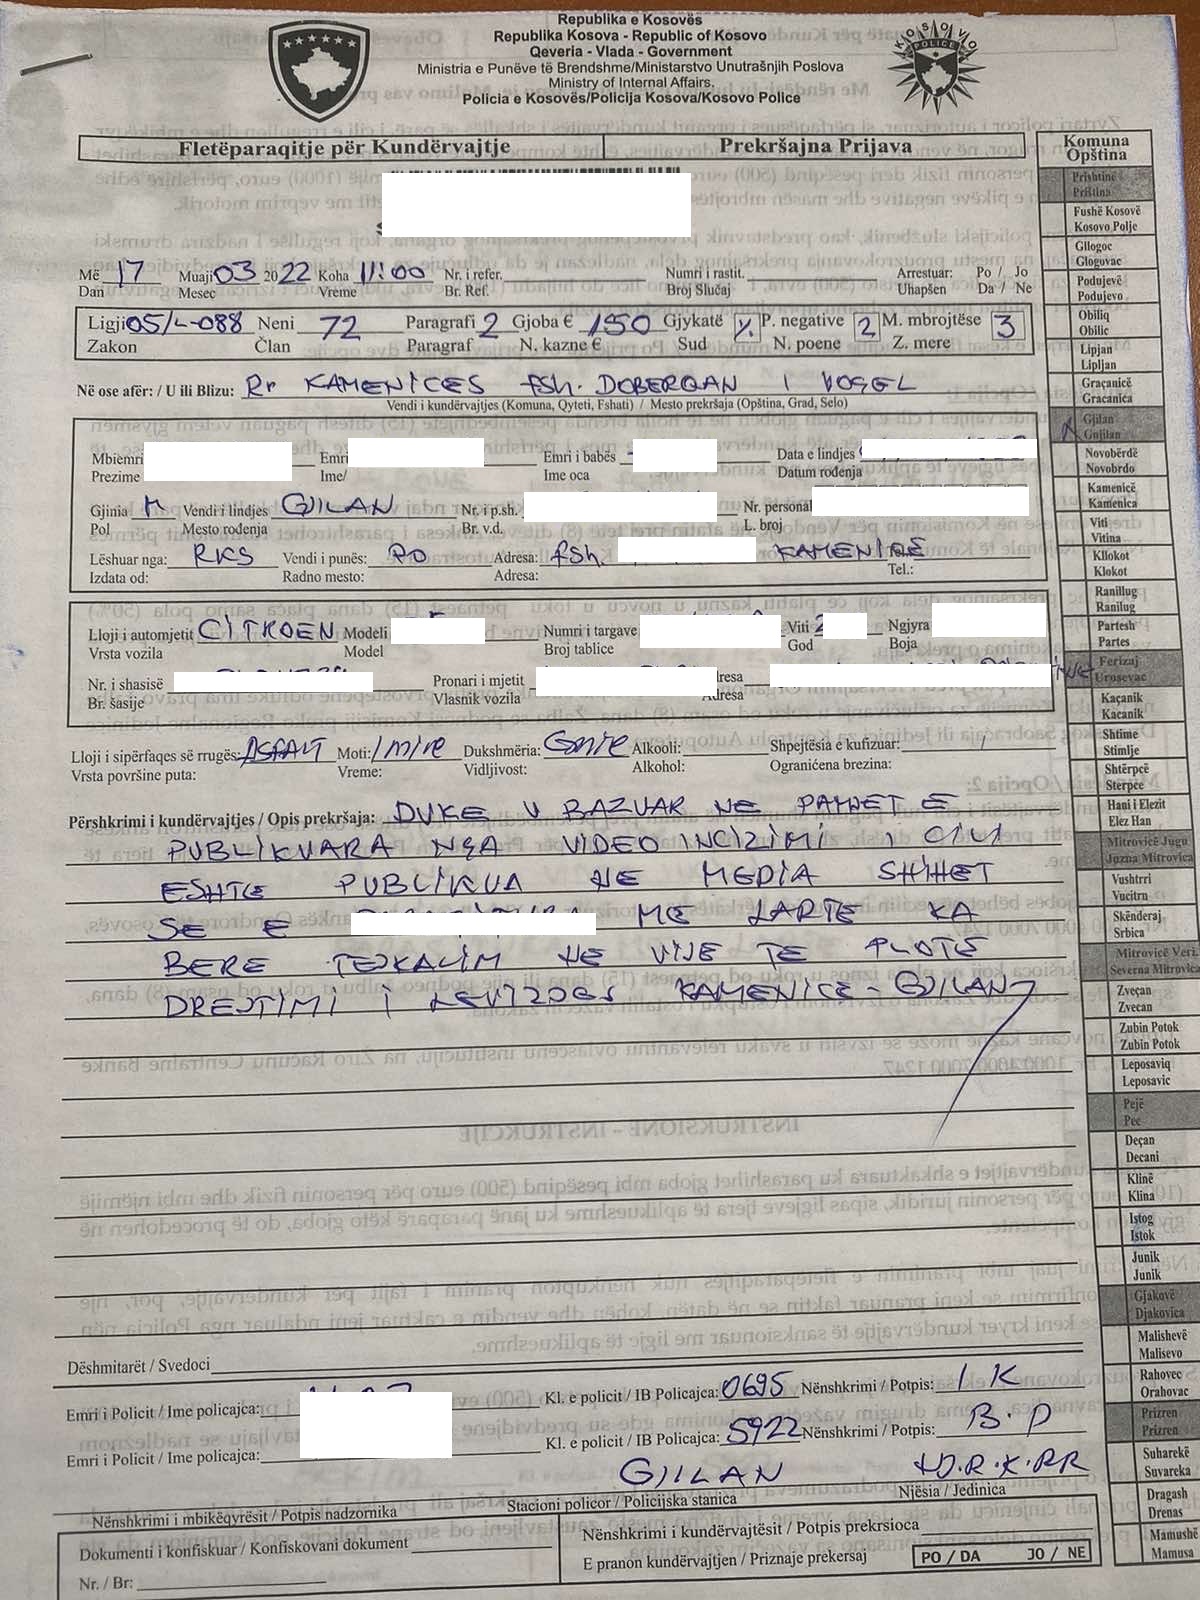 Republika e Kosovës
Republika Kosova - Republic of Kosovo
Qeveria - Vlada - Government
Ministria e Punëve të Brendshme/Ministarstvo Unutrašnjih Poslova
Ministry of Internal Affairs.
Policia e Kosovës/Policija Kosova/Kosovo Police
KOSOVO
POLICE
Fletëparaqitje për Kundërvajtje Prekršajna Prijava
Komuna
Opština
Më 17 Muaji 03 2022 Koha 11:00 Nr. i refer. Numri i rastit. Arrestuar: Po / Jo
Dan Mesec Vreme Br. Ref. Broj Slučaj Uhapšen Da / Ne
Ligji 05/L-088 Neni 72 Paragrafi 2 Gjoba € 150 Gjykatë P. negative 2 M. mbrojtëse 3
Zakon Član Paragraf N. kazne € Sud N. poene Z. mere
Në ose afër: / U ili Blizu: Rr KAMENICES fsh. DOBERQAN I VOGEL
Vendi i kundërvajtjes (Komuna, Qyteti, Fshati) / Mesto prekršaja (Opština, Grad, Selo)
Mbiemri Emri Emri i babës Data e lindjes
Prezime Ime/ Ime oca Datum rođenja
Gjinia M Vendi i lindjes GJILAN Nr. i p.sh. Nr. personal
Pol Mesto rođenja Br. v.d. L. broj
Lëshuar nga: RKS Vendi i punës: PO Adresa: fsh. KAMENICË
Izdata od: Radno mesto: Adresa: Tel.:
Lloji i automjetit CITROEN Modeli Numri i targave Viti 2 Ngjyra
Vrsta vozila Model Broj tablice God Boja
Nr. i shasisë Pronari i mjetit dresa
Br. šasije Vlasnik vozila Adresa
Lloji i sipërfaqes së rrugës: ASFALT Moti: / mire Dukshmëria: Gmire Alkooli: Shpejtësia e kufizuar:
Vrsta površine puta: Vreme: Vidljivost: Alkohol: Ograničena brezina:
Përshkrimi i kundërvajtjes / Opis prekršaja: DUKE U BAZUAR NE PAMJET E
PUBLIKUARA NGA VIDEO INCIZIMI I CILI
ESHTE PUBLIKUA NE MEDIA SHIHET
SE E ME LARTE KA
BERE TEJKALIM NE VIJE TE PLOTE
DREJTIMI I LEVIZJES KAMENICE - GJILAN
Dëshmitarët / Svedoci
Emri i Policit / Ime policajca: Kl. e policit / IB Policajca: 0695 Nënshkrimi / Potpis: I K
Emri i Policit / Ime policajca: Kl. e policit / IB Policajca: 5922 Nënshkrimi / Potpis: B.P
GJILAN
Nënshkrimi i mbikëqyrësit / Potpis nadzornika Stacioni policor / Policijska stanica Njësia / Jedinica
Dokumenti i konfiskuar / Konfiskovani dokument Nënshkrimi i kundërvajtësit / Potpis prekrsioca
Nr. / Br: E pranon kundërvajtjen / Priznaje prekersaj PO / DA JO / NE
Prishtinë
Priština
Fushë Kosovë
Kosovo Polje
Gllogoc
Glogovac
Podujevë
Podujevo
Obiliq
Obilic
Lipjan
Lipljan
Graçanicë
Gracanica
Gjilan
Gnjilan
Novobërdë
Novobrdo
Kamenicë
Kamenica
Viti
Vitina
Kllokot
Klokot
Ranillug
Ranilug
Partesh
Partes
Ferizaj
Urosevac
Kaçanik
Kacanik
Shtime
Stimlje
Shtërpcë
Sterpce
Hani i Elezit
Elez Han
Mitrovicë Jugu
Juzna Mitrovica
Vushtrri
Vucitrn
Skënderaj
Srbica
Mitrovicë Veri.
Severna Mitrovica
Zveçan
Zvecan
Zubin Potok
Zubin Potok
Leposaviq
Leposavic
Pejë
Pec
Deçan
Decani
Klinë
Klina
Istog
Istok
Junik
Junik
Gjakovë
Djakovica
Malishevë
Malisevo
Rahovec
Orahovac
Prizren
Prizren
Suharekë
Suvareka
Dragash
Drenas
Mamushë
Mamusa